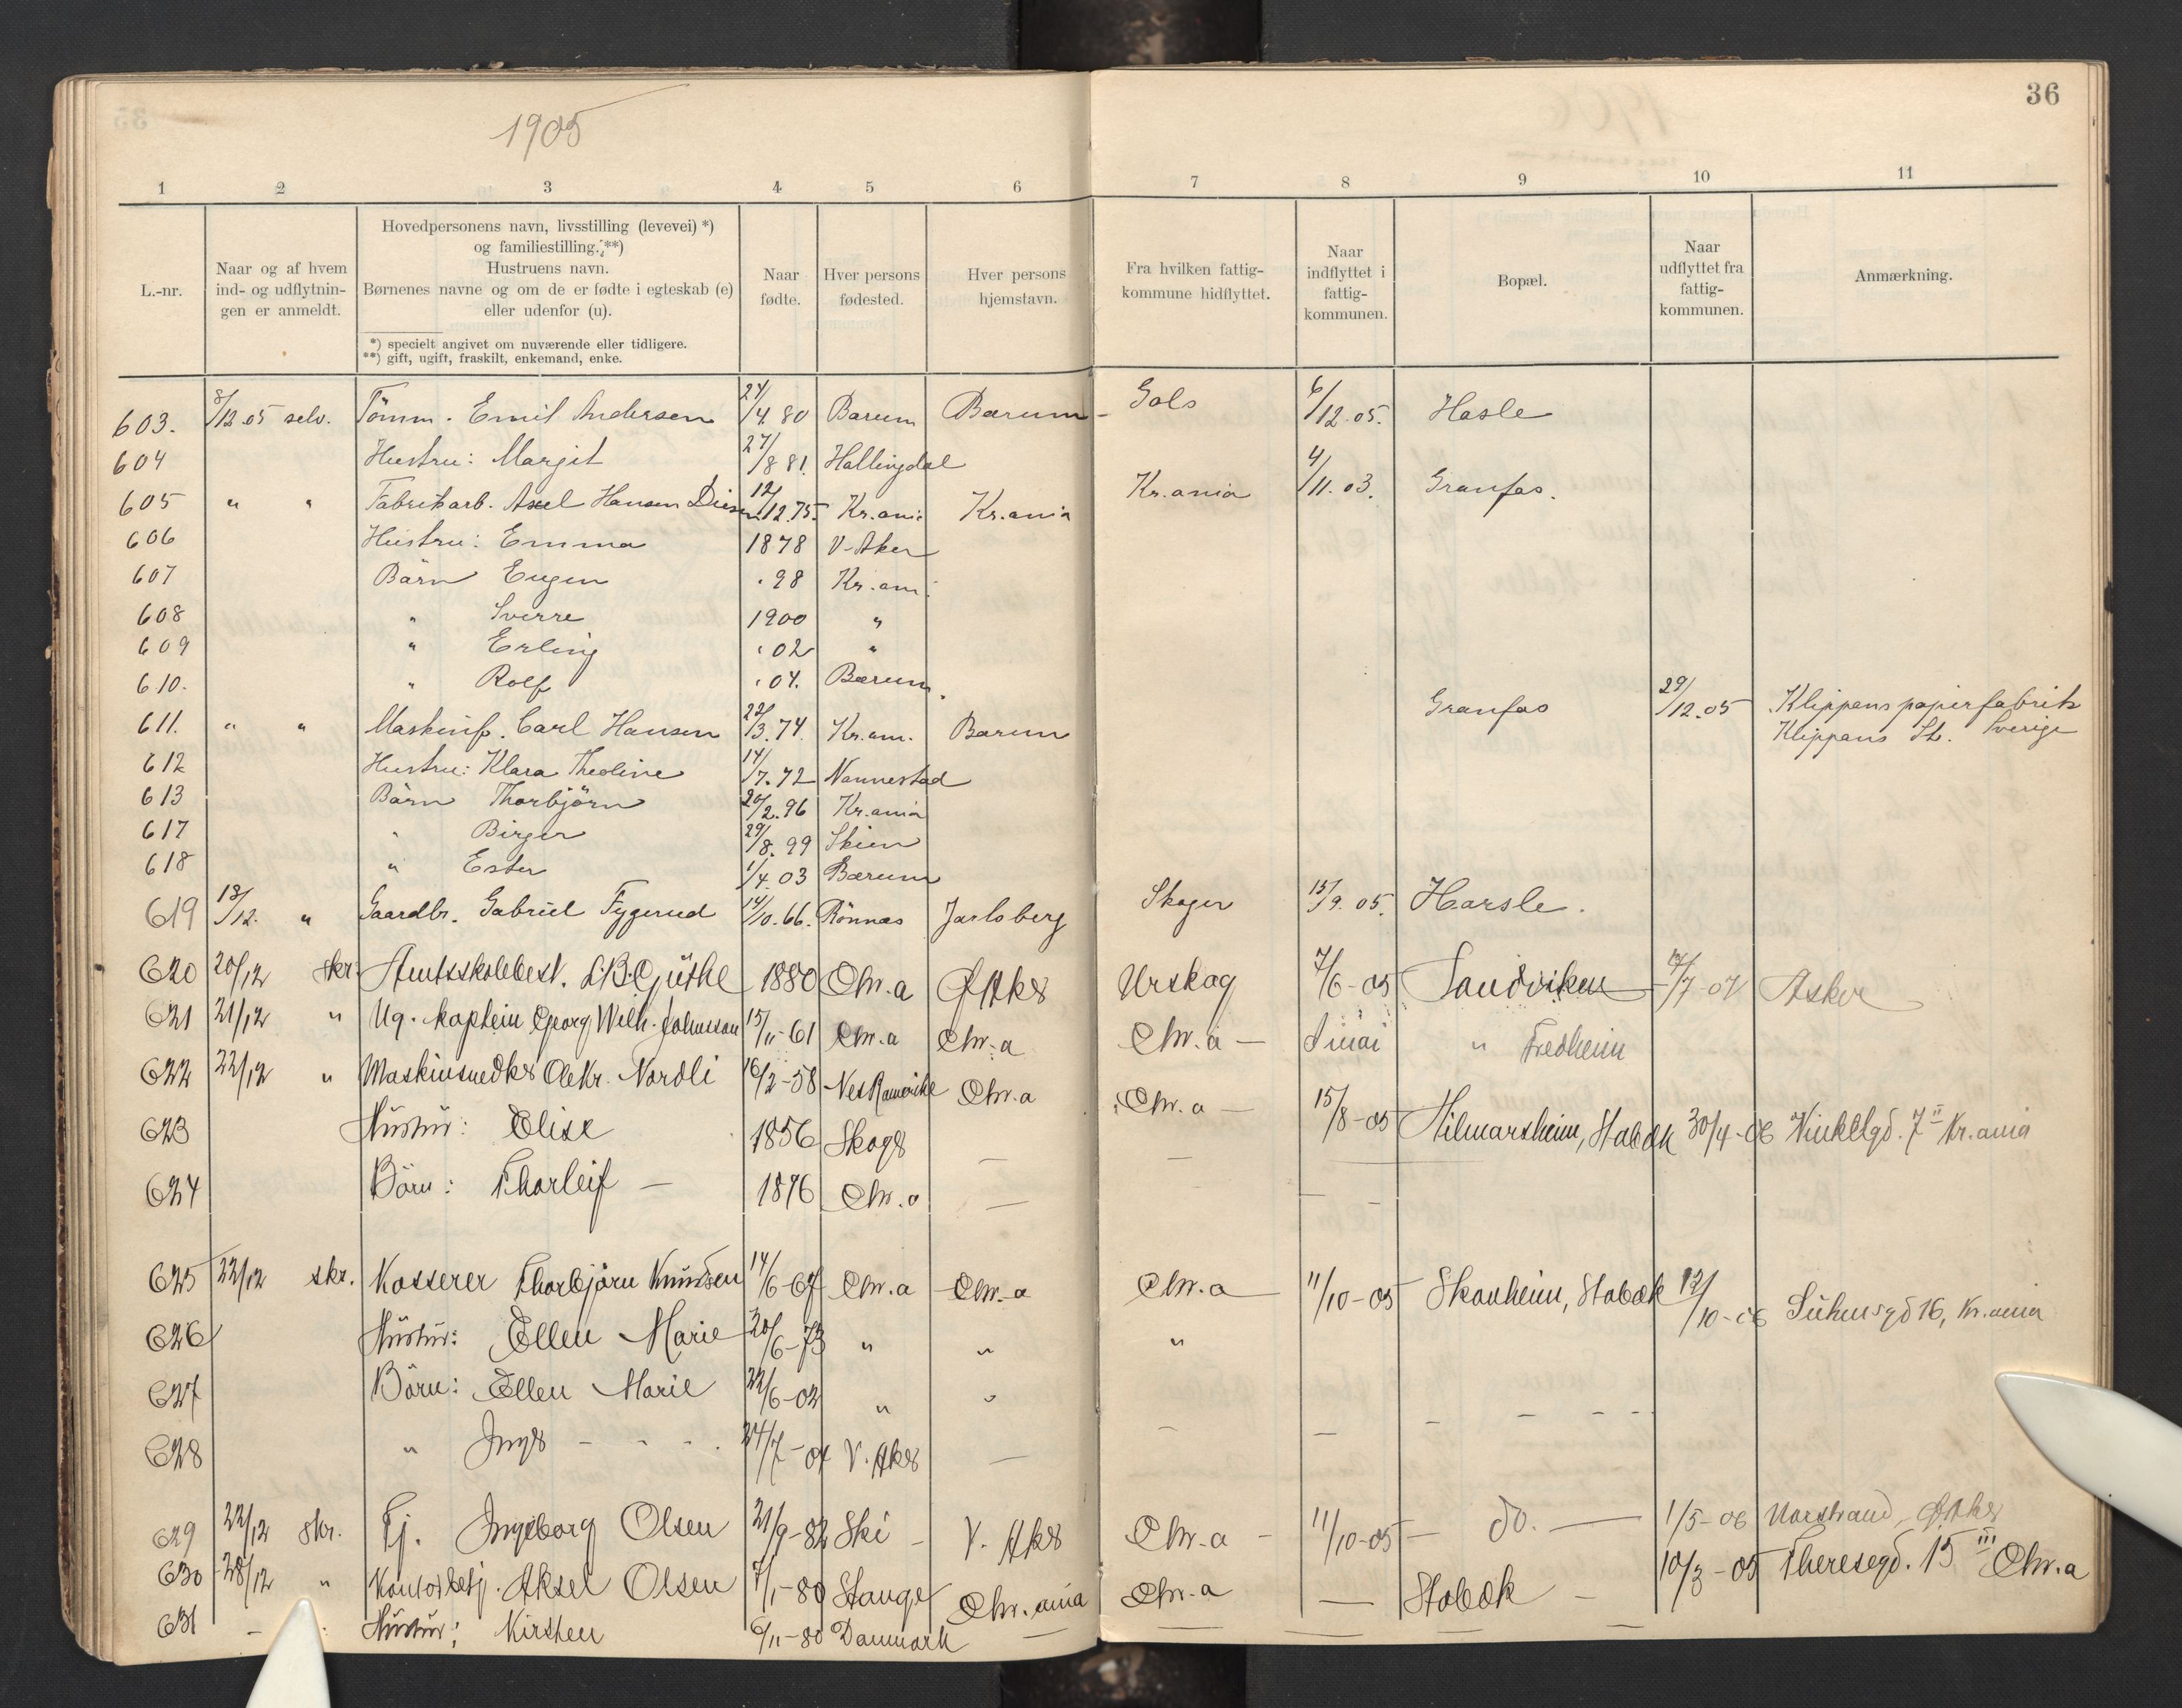 1905
36
1 2 3 4 5 6 7 8 9 10 11
L.-nr.
Naar og af hvem
ind- og udflytnin-
gen er anmeldt.
Hovedpersonens navn, livsstilling (levevei) *)
og familiestilling. **)
Hustruens navn.
Børnenes navne og om de er fødte i egteskab (e)
eller udenfor (u).
*) specielt angivet om nuværende eller tidligere.
**) gift, ugift, fraskilt, enkemand, enke.
Naar
fødte.
Hver persons
fødested.
Hver persons
hjemstavn.
Fra hvilken fattig-
kommune hidflyttet.
Naar
indflyttet i
fattig-
kommunen.
Bopæl.
Naar
udflyttet fra
fattig-
kommunen.
Anmærkning.
603. 8/12.05 selv. Tömm. Emil Andersen 24/4.80 Bærum Bærum Gols 6/12.05. Hasle
604 Hustru: Margit 27/8 81. Hallingdal
605 " " Fabrikarb. Axel Hansen 12/12.75. Kr.ania Kr.ania Kr.ania 4/11.03. Granfos.
606 Hustru: Emma 1878 V-Aker
607 Börn Eugen .98 Kr.ani.
608 " Sverre 1900 "
609 " Erling .02 "
610. " Rolf .04. Bærum.
611. " " Maskinf. Carl Hansen 22/3.74. Kr.an. Bærum Granfos 29/12.05 Klippans papirfabrik
Klippans St. Sverige
612 Hustru: Klara Theoline 14/7.72 Nannestad
613 Börn Thorbjörn 20/2.96 Kr.ania
617 " Birger 29/8.99 Skien
618 " Ester 1/4.03 Bærum
619 18/12. " Gaardbr. Gabriel Fygerud 14/10.66. Rönnæs Jarlsberg Skoger 15/9.05. Harsle.
620 20/12 skr. Amtsskolebest. 1880 Chr.a Ø Aker Urskog 7/6-05 Sandviken /7-07 Asker
621 21/12 " Ug. Kaptein Georg Wilh. Johnsson 15/11-61 Chr.a Chr.a Chr.a - 1 mai " Fredheim
622 22/12 " Maskinsnedker Ole Kr. Nordli 16/2-58 Nes Romerike Chr.a Chr.a - 15/8-05 Hilmarsheim, Stabæk 30/4-06 Vinkelgd. 7 II Kr.ania
623 Hustru: Elise 1856 Skoger — —
624 Börn: Thorleif — 1896 Chr.a — — —
625 22/12 skr. Kasserer Thorbjörn Knudsen 14/6-67 Chr.a Chr.a Chr.a 11/10-05 Skauheim, Stabæk 12/10-06 Suhmsgd 16, Kr.ania
626 Hustru: Ellen Marie 20/6-73 " " "
627 Börn: Ellen Marie 22/6-02 " "
628 " Inger 24/7-04 V. Aker —
629 22/12 skr. Tj. Ingeborg Olsen 21/9-82 Ski - V. Aker Chr.a - 11/10-05 — do. — 1/5-06 Norstrand, Ø. Aker
630 28/12 " Kontorbetj. Aksel Olsen 7/1-80 Stange Chr.ania Chr.a — Stabæk - 10/3-05 Theresegd. 15 III Chr.a
631 - Hustru: Kirsten 6/11-80 Danmark — — — —